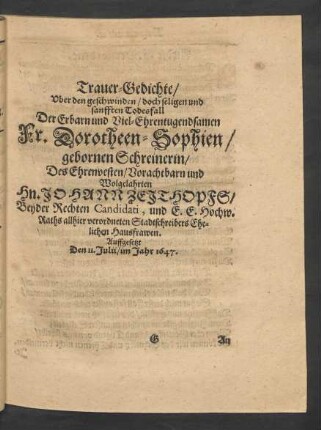 Trauer-Gedichte/
Vber den geschwinden/ doch seligen und
sanfften Todesfall
Der Erbarn und Viel-Ehrentugendsamen
Fr. Dorotheen-Sophien/
gebornen Schreinerin/
Des Ehrenvesten/ Vorachtbarn und
Wolgelahrten
Hn. JOHANN ZEITHOPFS/
Beyder Rechten Candidati, und E. E. Hochw.
Raths allhier verordneten Stadtschreibers Ehe-
lichen Hausfrawen.
Auffgesetzt
Den 11. Julii/ im Jahr 1647.
G An